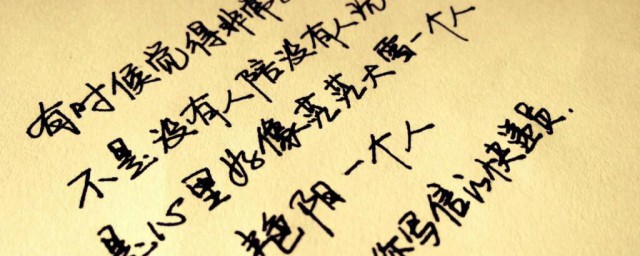 有时候觉得非常
不是没有人陪没有人说
是心里好像茫茫大雪一个人
艳阳一个人
你写信的快递员.